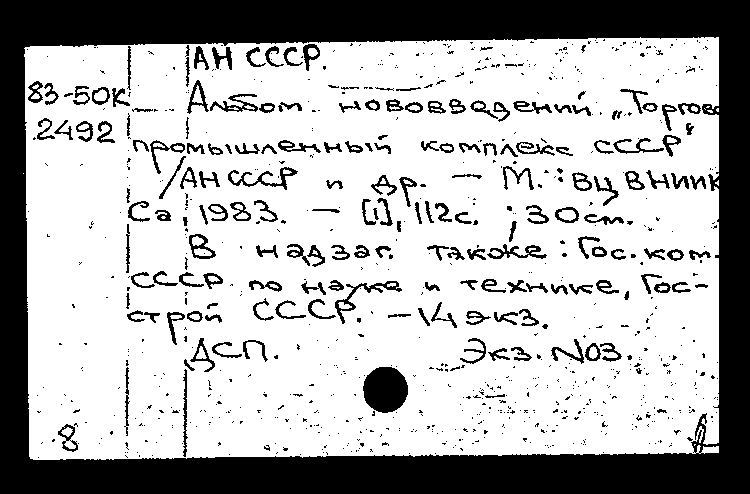 АН СССР.
83-50К Альбом нововведений „Торгово
2492 промышленный комплекс СССР"
/АН СССР и др. — М. : ВЦ ВНИИК
Са, 1983. — [1], 112с. ; 30см.
В надзаг. также : Гос. ком.
СССР по науке и технике, Гос-
строй СССР. — 14 экз.
ДСП. Экз. №3.
8